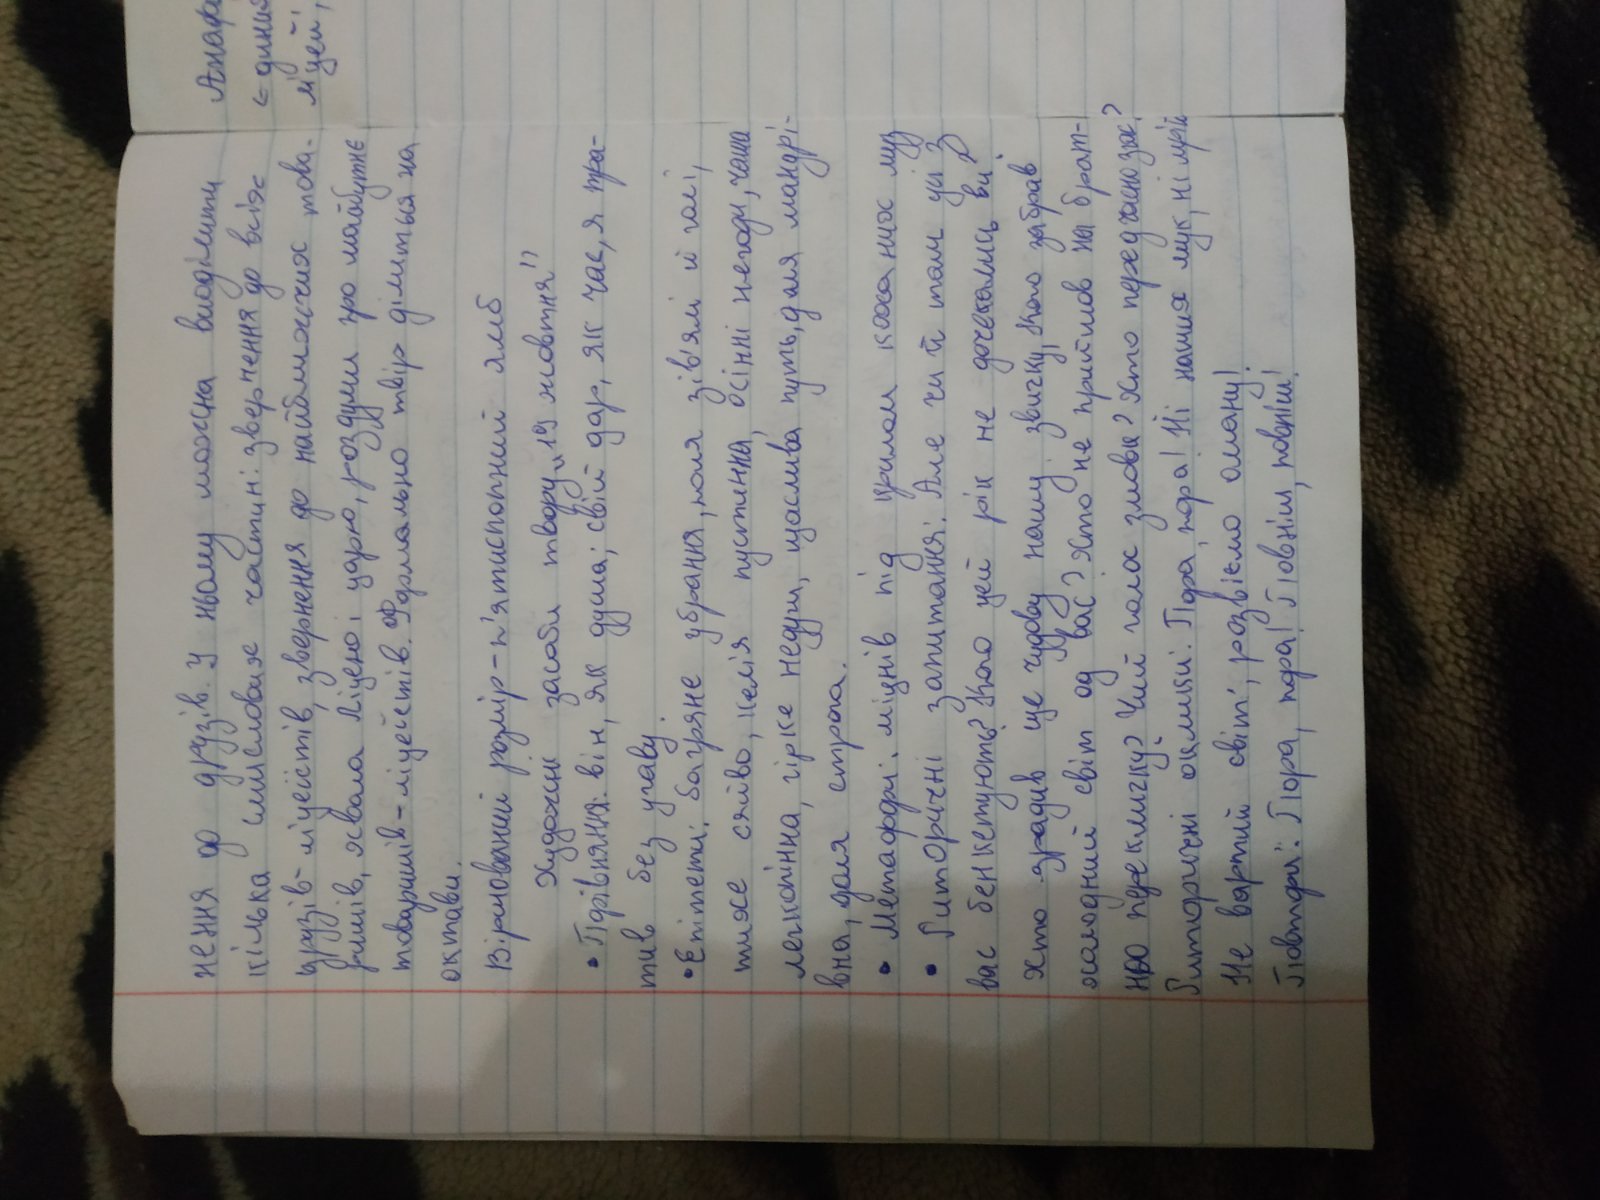 нення до друзів. У ньому можна виділити
кілька смислових частин: звернення до всіх
друзів-ліцеїстів, звернення до найближчих това-
ришів, хвала Ліцею і царю, роздуми про майбутнє
товаришів-ліцеїстів. Формально твір ділиться на
октави.
Віршований розмір - п'ятистопний ямб
Художні засоби твору „19 жовтня"
• Порівняння: він, як душа; свій дар, як час, я тра-
тив без угаву
• Епітети: багряне убрання, поля зів'ялі й голі,
тихе сяйво, келія пустинна, осінні негоди, чаша
легкопінна, гірке недуги, щаслива путь, доля мандрі-
вна, доля строга.
• Метафори: міцнів під крилом коханих муз
• Риторичні запитання: Але чи й там усі з
вас бенкетують? Кого цей рік не дочекались ви?
Хто зрадив ще чудову нашу звичку, Кого забрав
холодний світ од вас? Хто не прийшов на брат-
ню перекличку? Чий голос змовк? Хто передчасно згас?
Риторичні оклики: Пора, пора! Ні наших мук, ні мрій
Не вартий світ; розвіємо оману!
Повтори: Пора, пора! Повнім, повніш!
Анафо
є-диния
ліцей,